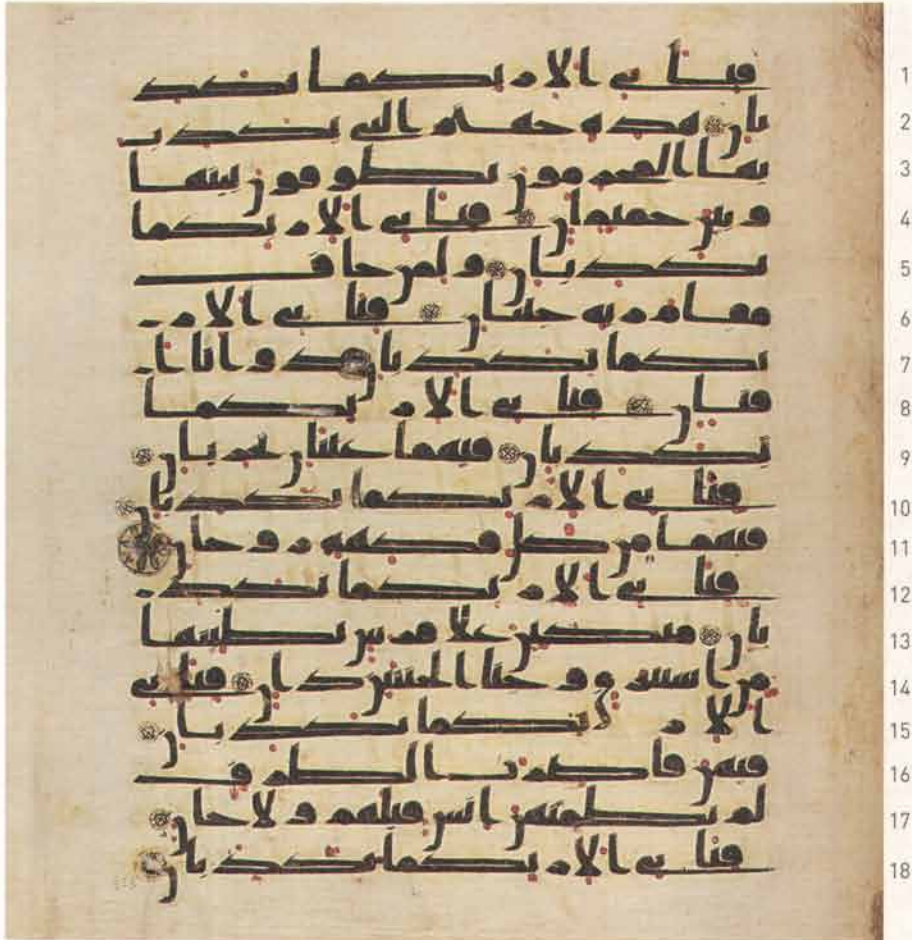 1 فباي الا ربكما تكذ
2 بان هذه جهنم التي يكذب
3 بها المجرمون يطوفون بينها
4 وبين حميم ان فباي الا ربكما
5 تكذبان ولمن خاف
6 مقام ربه جنتان فباي الا
7 ربكما تكذبان ذواتا ا
8 فنان فباي الا ربكما
9 تكذبان فيهما عينان تجريان
10 فباي الا ربكما تكذبان
11 فيهما من كل فكهة زوجان
12 فباي الا ربكما تكذ
13 بان متكين على فرش بطينها
14 من استبرق وجنا الجنتين دان فباي
15 الا ربكما تكذبان
16 فيهن قصرت الطرف
17 لم يطمثهن انس قبلهم ولا جان
18 فباي الا ربكما تكذبان